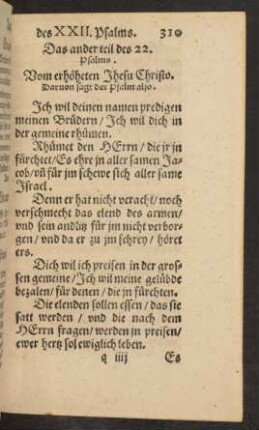 des XXII. Psalms. 310
Das ander teil des 22.
Psalms.
Vom erhöheten Jhesu Christo.
Daruon sagt der Psalm also.
Jch wil deinen namen predigen
meinen Brüdern / Jch wil dich in
der gemeine rhümen.
Rhümet den HErrn / die jr jn
fürchtet / Es ehre jn aller samen Ja-
cob / vñ für jm schewe sich aller same
Jsrael.
Denn er hat nicht veracht / noch
verschmecht das elend des armen /
vnd sein andlitz für jm nicht verbor-
gen / vnd da er zu jm schrey / höret
ers.
Dich wil ich preisen in der gros-
sen gemeine / Jch wil meine gelübde
bezalen / für denen / die jn fürchten.
Die elenden sollen essen / das sie
satt werden / vnd die nach dem
HErrn fragen / werden jn preisen /
ewer hertz sol ewiglich leben.
q iiij Es